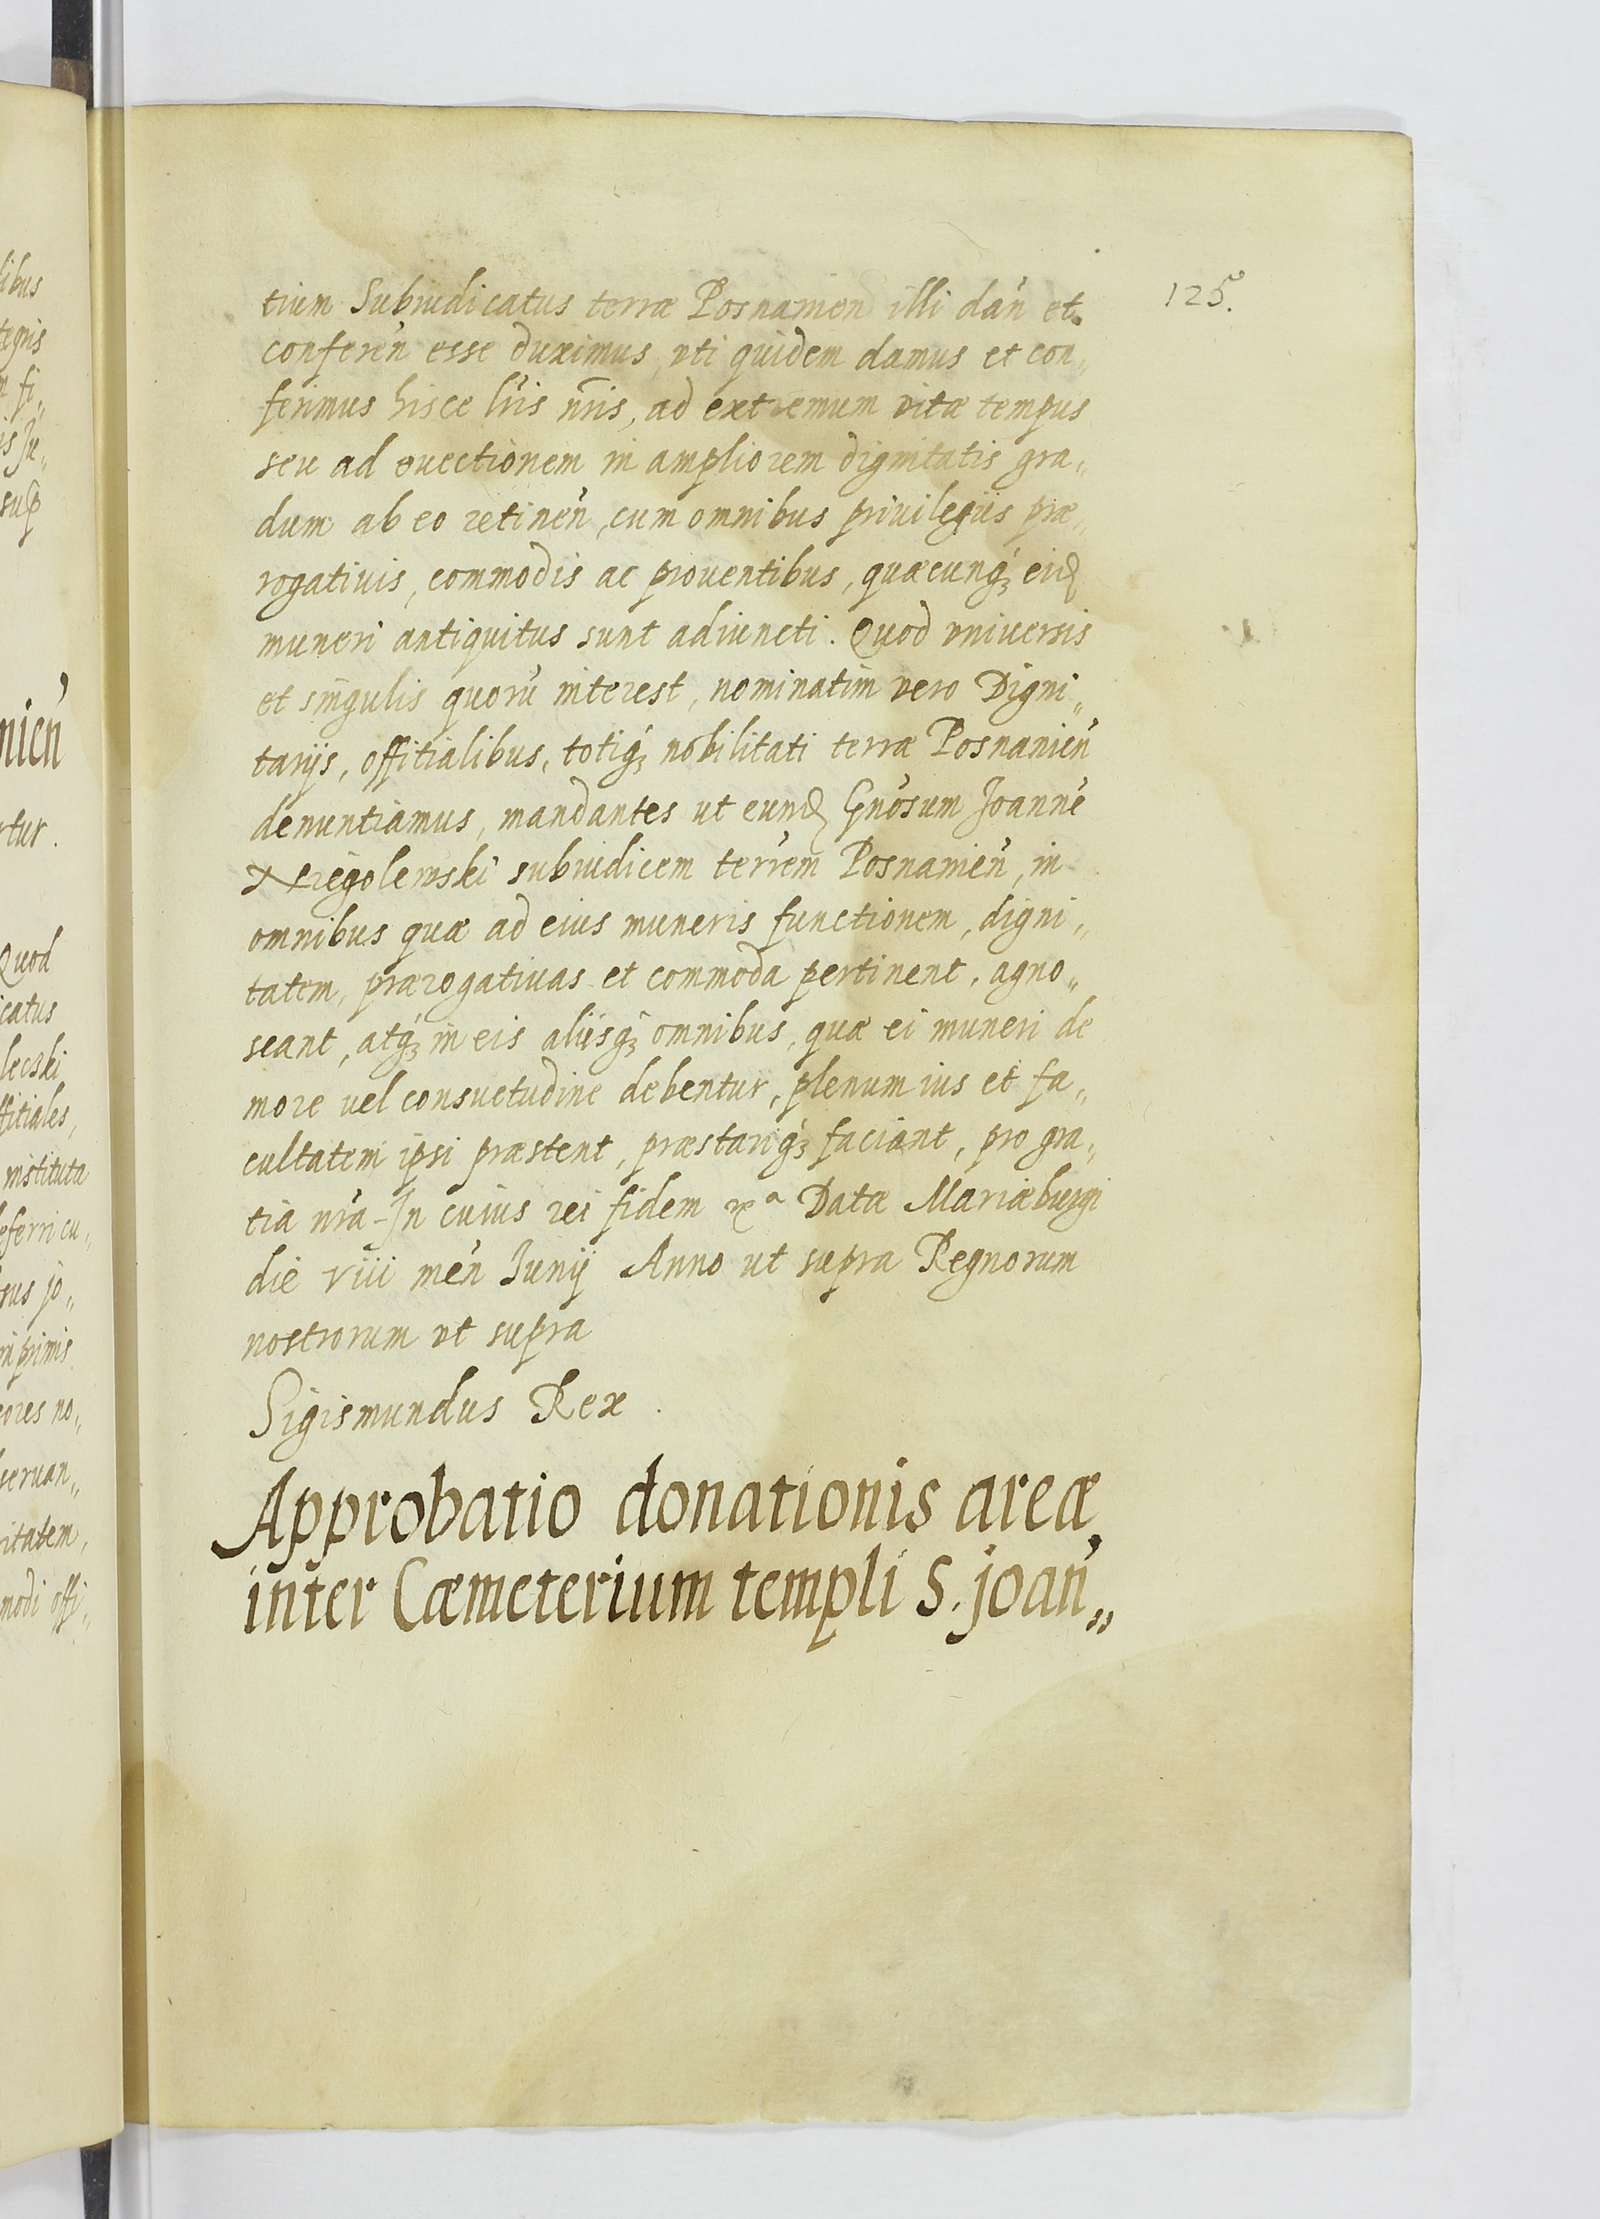 125.
tium Subiudicatus terræ Posnanien illi dan̄ et
conferen̄ esse duximus, vti quidem damus et con„
ferimus hisce lr̄is nr̄is, ad extremum vitæ tempus
seu ad evectionem in ampliorem dignitatis gra„
dum ab eo retinen̄, cum omnibus priuilegiis præ„
rogativis, commodis ac prouentibus, quæcunq₃ eid
muneri antiquitus sunt adiuncti. Quod vniversis
et singulis quorū interest, nominatim vero Digni„
tarijs, offitialibus, totiq₃ nobilitati terræ Posnanien̄
denuntiamus, mandantes ut eund Gn̄osum Joannē
subiudicem terr̄em Posnanien̄, in
omnibus quæ ad eius muneris functionem, digni„
tatem, prærogativas et commoda pertinent, agno„
scant, atq₃ in eis aliisq₃ omnibus, quæ ei muneri de
more vel consuetudine debentur, plenum ius et fa„
cultatem ipsi præstent, præstariq₃ faciant, pro gra„
tia nr̄a - In cuius rei fidem Datæ Mariæburgi
die viii men̄ Junij Anno ut supra Regnorum
nostrorum vt supra
Sigismundus Rex.
Approbatio donationis areæ
inter Cæmeterium templi S. Joan̄„